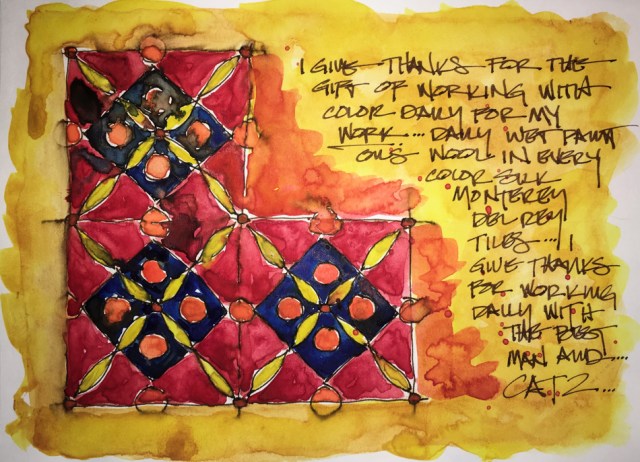 I GIVE THANKS FOR THE
GIFT OF WORKING WITH
COLOR DAILY FOR MY
WORK... DAILY WET PAINT
OILS WOOL IN EVERY
COLOR SILK
MONTEREY
DEL REY
TILES... I
GIVE THANKS
FOR WORKING
DAILY WITH
THE BEST
MAN AND....
CATZ...